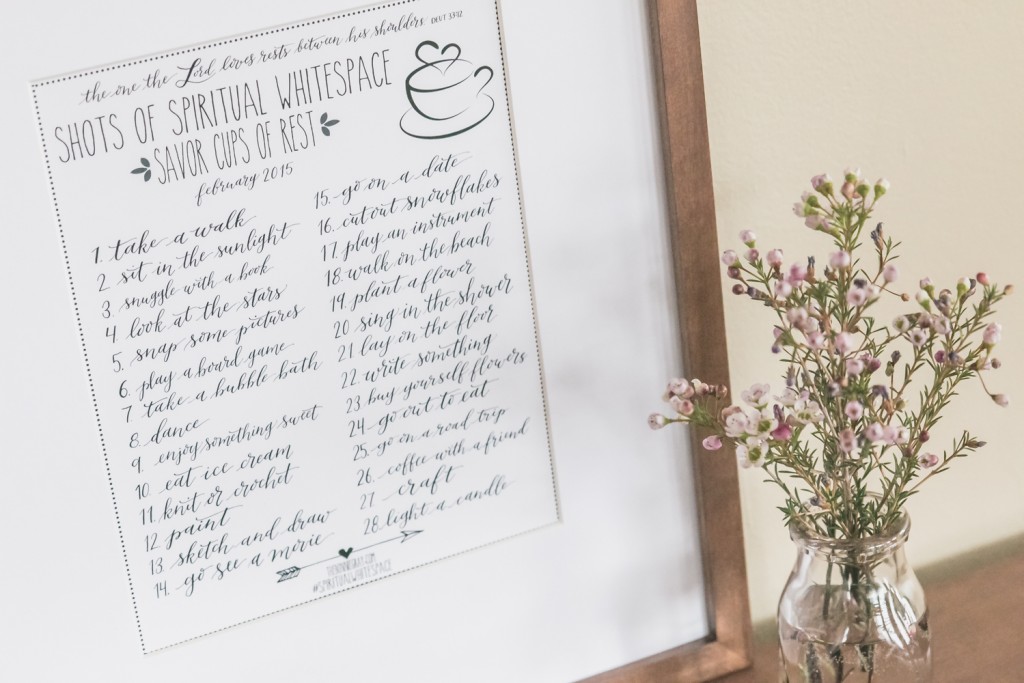 the one the Lord loves rests between his shoulders DEUT 33:12
SHOTS OF SPIRITUAL WHITESPACE
SAVOR CUPS OF REST
february 2015
1. take a walk
2 sit in the sunlight
3. snuggle with a book
4. look at the stars
5. snap some pictures
6. play a board game
7 take a bubble bath
8. dance
9. enjoy something sweet
10. eat ice cream
11. knit or crochet
12 paint
13. sketch and draw
14. go see a movie
15. go on a date
16. cut out snowflakes
17. play an instrument
18. walk on the beach
19. plant a flower
20 sing in the shower
21 lay on the floor
22. write something
23 buy yourself flowers
24. go out to eat
25. go on a road trip
26. coffee with a friend
27 craft
28. light a candle
#SPIRITUALWHITESPACE